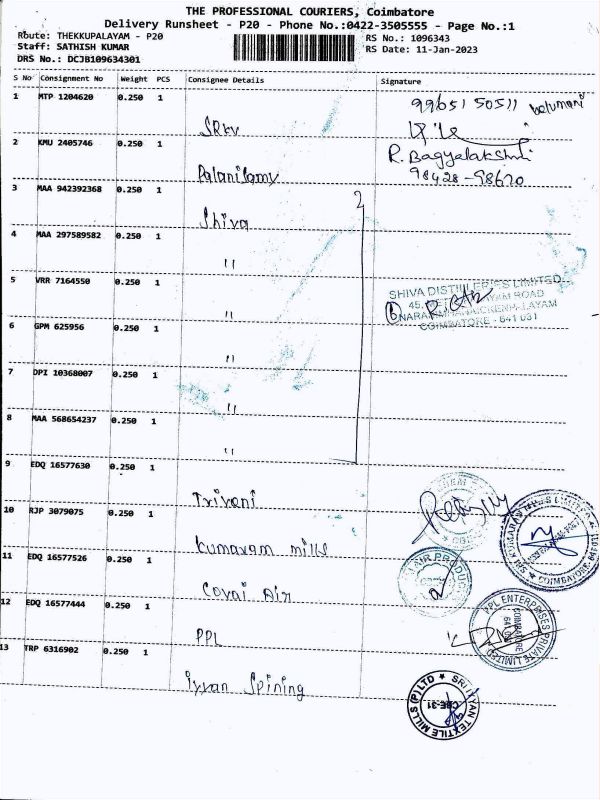 THE PROFESSIONAL COURIERS, Coimbatore
Delivery Runsheet - P20 - Phone No.:0422-3505555 - Page No.:1
Route: THEKKUPALAYAM - P20
Staff: SATHISH KUMAR
DRS No.: DCJB109634301
RS No.: 1096343
RS Date: 11-Jan-2023
S No Consignment No Weight PCS Consignee Details Signature
1 MTP 1204620 0.250 1 SRKV 99651 50511
2 KMU 2405746 0.250 1 Palanisamy R. Bagyalakshmi 98428-98670
3 MAA 942392368 0.250 1 Shiva
4 MAA 297589582 0.250 1 "
5 VRR 7164550 0.250 1 "
SHIVA DISTILLERIES LIMITED
COIMBATORE - 641 031
6 GPM 625956 0.250 1 "
7 DPI 10368007 0.250 1 "
8 MAA 568654237 0.250 1 "
9 EDQ 16577630 0.250 1 Triveni
10 RJP 3079075 0.250 1 Kumaram mills
11 EDQ 16577526 0.250 1 Covai Air
12 EDQ 16577444 0.250 1 PPL
PPL ENTERPRISES PRIVATE LIMITED
13 TRP 6316902 0.250 1 iyyan Spining
SRI IYYAN TEXTILE MILLS (P) LTD
CBE-31